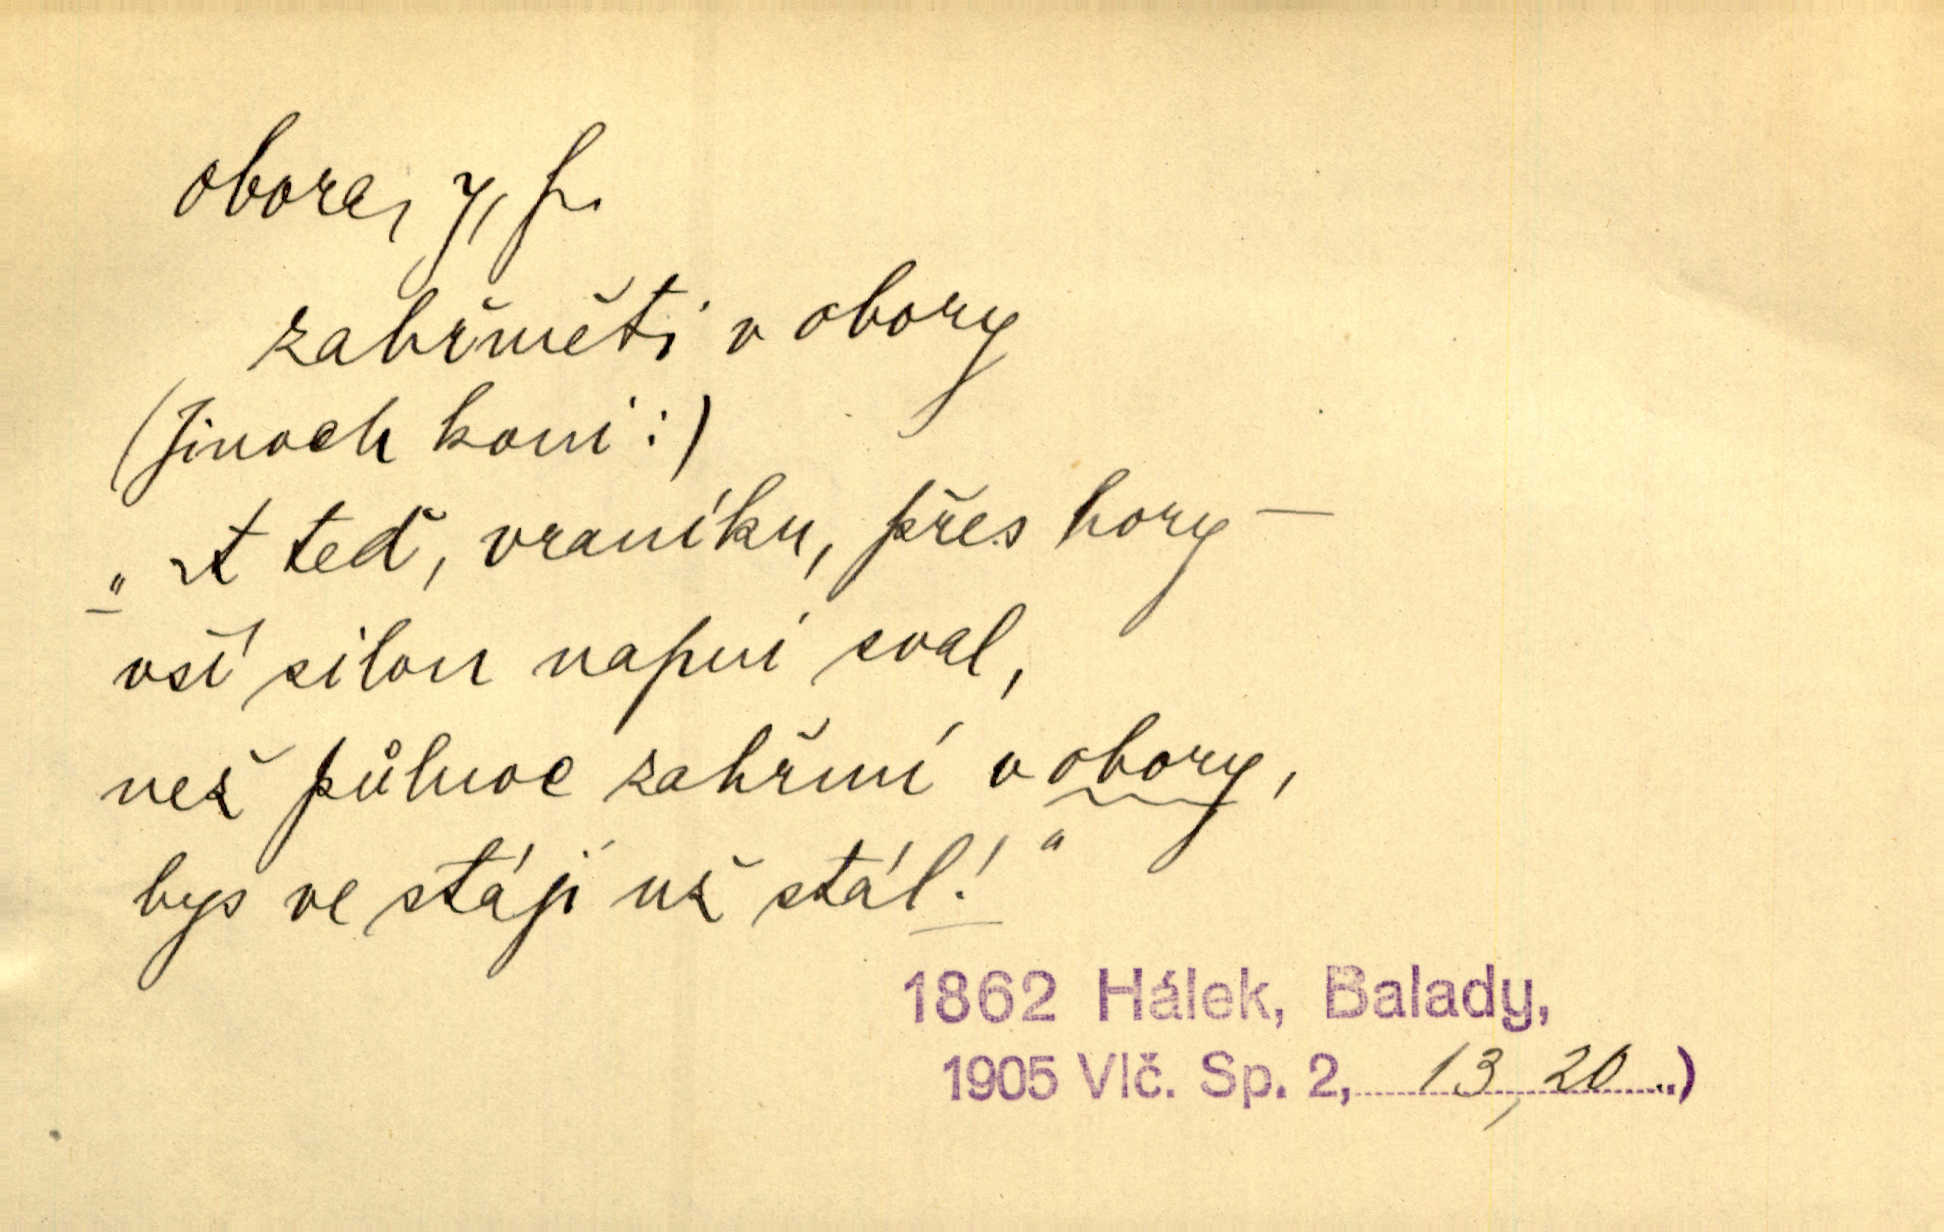 obora, y, f.
zahřměti v obory
(Jinoch koni:)
„A teď, vraníku, přes hory —
vší silou napni sval,
než půlnoc zahřmí v obory,
bys ve stáji už stál!“
1862 Hálek, Balady,
1905 Vlč. Sp. 2, 13, 20 .)